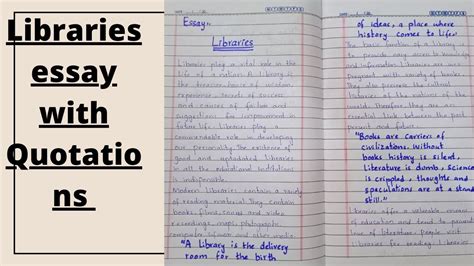 Libraries
essay
with
Quotatio
ns
Essay:
Libraries
Libraries play a vital role in the
life of a nation. A library is
the treasure-house of
experience, secrets of success
and causes of failure and
suggestions for improvement in
future life. Libraries play a
commendable role in developing
our personality. The existence of
good and uptodated Libraries
in all the educational institutions
is
Modern Libraries contain a variety
of reading material. They contain
books, films, and video
recordings, maps, photographs,
computer software and other media.
"A Library is the delivery
room for the birth
of ideas, a place where
history comes to life."
The basic function of a library is
to provide easy access to
and information. Libraries are
with variety of books.
They also preserve the cultural
of the nations of the
world. Therefore, they are an
essential link between the past
and future.
"Books are carriers of
civilizations. Without
books history is silent,
Literature is dumb, science
is crippled, thoughts and
speculations are at a stand
still."
Libraries offer a valuable means
of education and tend to
level of true people visit
libraries for reading. Libraries